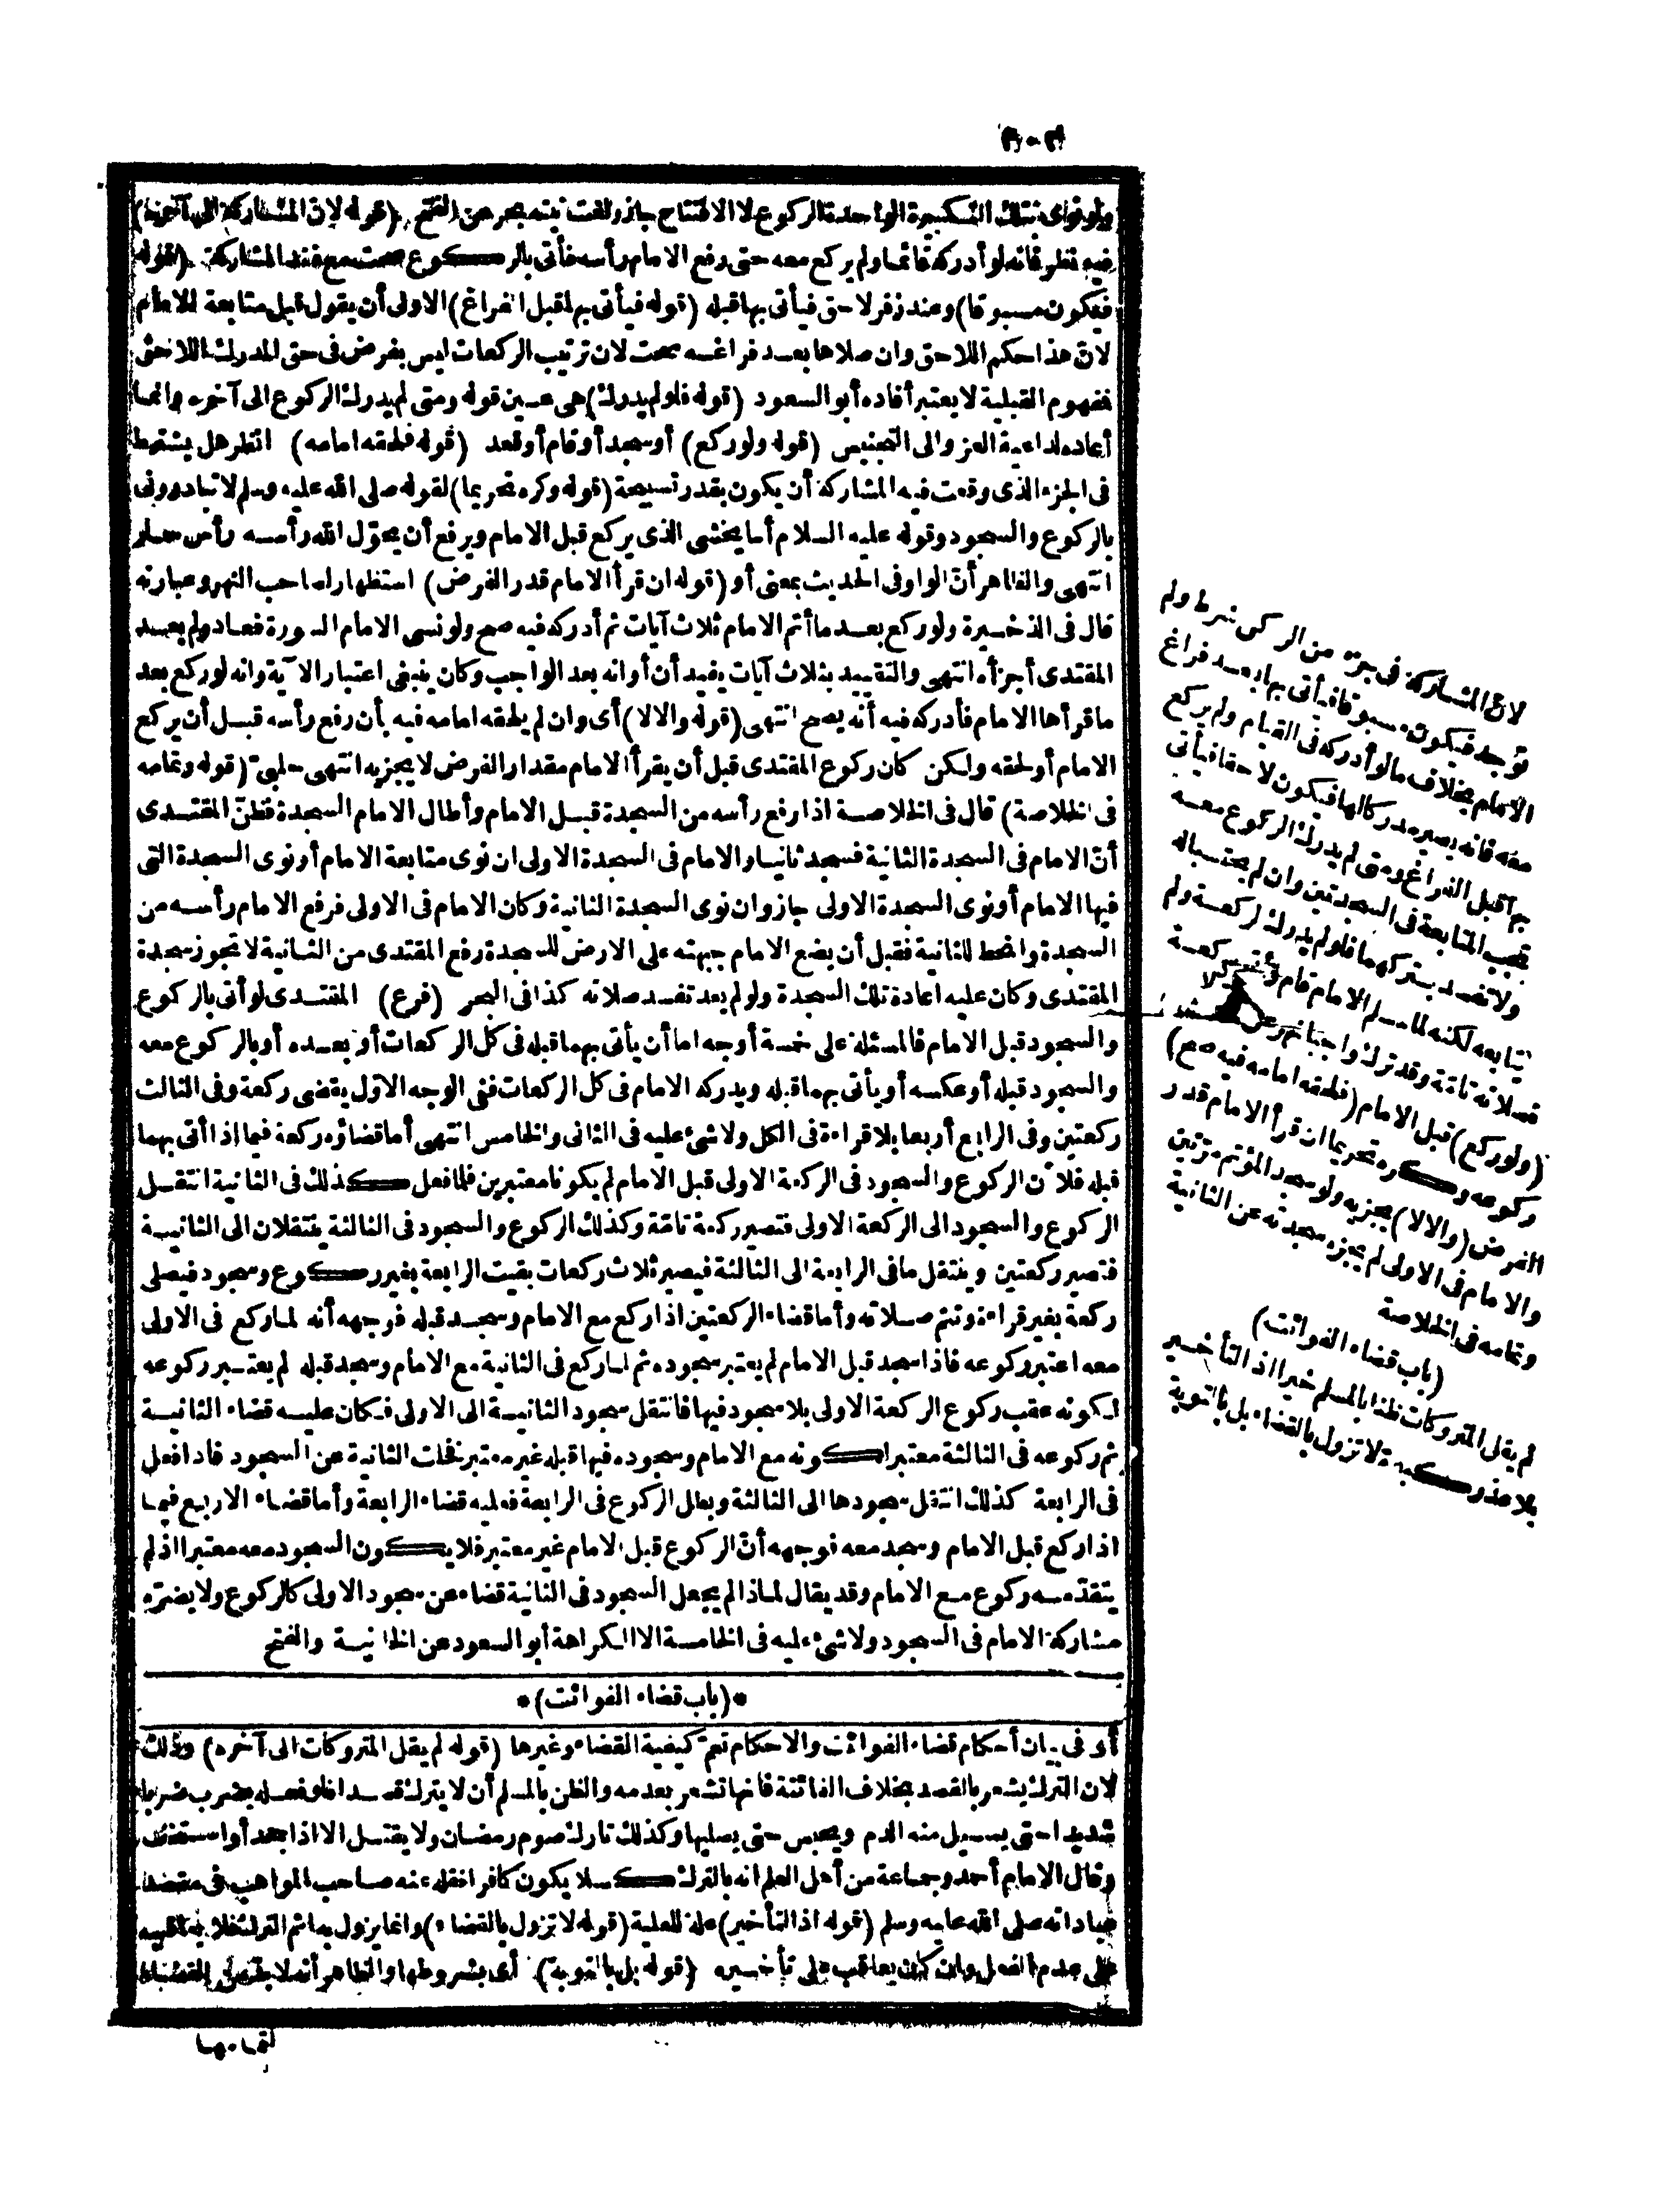 ولو نوى بتلك التكبيرة الواحدة الركوع لا الافتتاح جاز ولغت نيته بحر عن الفتح (قوله لان المشاركة الى آخره)
فيه نظر فانه لو أدركه قائما ولم يركع معه حتى رفع الامام رأسه فأتى بالركوع صحت مع فقد المشاركة (قوله
فيكون مسبوقا) وعند زفر لاحق فيأتى بها قبله (قوله فيأتى بها قبل الفراغ) الاولى أن يقول قبل متابعة الامام
لان هذا حكم اللاحق وان صلاها بعد فراغه صحت لان ترتيب الركعات ليس بفرض فى حق المدرك اللاحق
فمفهوم القبلية لا يعتبر أفاده أبو السعود (قوله فلو لم يدرك) هى عين قوله ومتى لم يدرك الركوع الى آخره وانما
أعاده لداعية العزو الى التجنيس (قوله ولو ركع) أو سجد أو قام أو قعد (قوله فلحقه امامه) انظر هل يشترط
فى الجزء الذى وقعت فيه المشاركة أن يكون بقدر تسبيحة (قوله وكره تحريما) لقوله صلى الله عليه وسلم لا تبادرونى
بالركوع والسجود وقوله عليه السلام أما يخشى الذى يركع قبل الامام ويرفع أن يحوّل الله رأسه رأس حمار
انتهى والظاهر أنّ الواو فى الحديث بمعنى أو (قوله ان قرأ الامام قدر الفرض) استظهارا لصاحب النهر وعبارته
قال فى الذخيرة ولو ركع بعد ما أتم الامام ثلاث آيات ثم أدركه فيه صح ولو نسى الامام السورة فعاد ولم يعد
المقتدى أجزأه انتهى والتقييد بثلاث آيات يفيد أن أوانه بعد الواجب وكان ينبغى اعتبار الآية وانه لو ركع بعد
ما قرأها الامام فأدركه فيه أنه يصح انتهى (قوله والا لا) أى وان لم يلحقه امامه فيه بأن رفع رأسه قبل أن يركع
الامام أو لحقه ولكن كان ركوع المقتدى قبل أن يقرأ الامام مقدار الفرض لا يجزيه انتهى حلبىّ (قوله وتمامه
فى الخلاصة) قال فى الخلاصة اذا رفع رأسه من السجدة قبل الامام وأطال الامام السجدة فظنّ المقتدى
أنّ الامام فى السجدة الثانية فسجد ثانيا والامام فى السجدة الاولى ان نوى متابعة الامام أو نوى السجدة التى
فيها الامام أو نوى السجدة الاولى جاز وان نوى السجدة الثانية وكان الامام فى الاولى فرفع الامام رأسه من
السجدة وانحط للثانية فقبل أن يضع الامام جبهته على الارض للسجدة رفع المقتدى من الثانية لا تجوز سجدة
المقتدى وكان عليه اعادة تلك السجدة ولو لم يعد تفسد صلاته كذا فى البحر (فرع) المقتدى لو أتى بالركوع
والسجود قبل الامام فالمسئلة على خمسة أوجه اما أن يأتى بهما قبله فى كل الركعات أو بعده أو بالركوع معه
والسجود قبله أو عكسه أو يأتى بهما قبله ويدركه الامام فى كل الركعات ففى الوجه الاوّل يقضى ركعة وفى الثالث
ركعتين وفى الرابع أربعا بلا قراءة فى الكل ولا شئ عليه فى الثانى والخامس انتهى أما قضاؤه ركعة فيما اذا أتى بهما
قبله فلأن الركوع والسجود فى الركعة الاولى قبل الامام لم يكونا معتبرين فلما فعل كذلك فى الثانية انتقل
الركوع والسجود الى الركعة الاولى فتصير ركعة تامّة وكذلك الركوع والسجود فى الثالثة ينتقلان الى الثانية
فتصير ركعتين وينتقل ما فى الرابعة الى الثالثة فيصير ثلاث ركعات بقيت الرابعة بغير ركوع وسجود فيصلى
ركعة بغير قراءة وتتم صلاته وأما قضاء الركعتين اذا ركع مع الامام وسجد قبله فوجهه أنه لما ركع فى الاولى
معه اعتبر ركوعه فاذا سجد قبل الامام لم يعتبر سجوده ثم لما ركع فى الثانية مع الامام وسجد قبله لم يعتبر ركوعه
لكونه عقب ركوع الركعة الاولى بلا سجود فيها فانتقل سجود الثانية الى الاولى فكان عليه قضاء الثانية
ثم ركوعه فى الثالثة معتبر لكونه مع الامام وسجوده فيها قبله غير معتبر فخلت الثانية عن السجود فاذا فعل
فى الرابعة كذلك انتقل سجودها الى الثالثة وبطل الركوع فى الرابعة فعليه قضاء الرابعة وأما قضاء الاربع فيما
اذا ركع قبل الامام وسجد معه فوجهه أنّ الركوع قبل الامام غير معتبر فلا يكون السجود معه معتبرا اذ لم
يتقدّمه ركوع مع الامام وقد يقال لماذا لم يجعل السجود فى الثانية قضاء عن سجود الاولى كالركوع ولا يضرّه
مشاركة الامام فى السجود ولا شئ عليه فى الخامسة الا الكراهة أبو السعود عن الخانية والفتح
*(باب قضاء الفوائت)*
أى فى بيان أحكام قضاء الفوائت والاحكام تعمّ كيفية القضاء وغيرها (قوله لم يقل المتروكات الى آخره) وذلك
لان الترك يشعر بالقصد بخلاف الفائتة فانها تشعر بعدمه والظن بالمسلم أن لا يترك قصدا فلو فعله يضرب ضربا
شديدا حتى يسيل منه الدم ويحبس حتى يصليها وكذلك تارك صوم رمضان ولا يقتل الا اذا جحد أو استخف
وقال الامام أحمد وجماعة من أهل العلم انه بالترك كسلا يكون كافرا نقله عنه صاحب المواهب فى مقصد
عباداته صلى الله عليه وسلم (قوله اذ التأخير) علة للعلية (قوله لا تزول بالقضاء) وانما يزول به اثم الترك فلا يعاقب
على عدم الفعل وان كان يعاقب على تأخيره (قوله بل بالتوبة) أى بشروطها والظاهر أنه لا
لان المشاركة فى جزء من الركن شرط ولم
توجد فيكون مسبوقا فيأتى بها بعد فراغ
الامام بخلاف ما لو أدركه فى القيام ولم يركع
معه فانه يصير مدركا لها فيكون لاحقا فيأتى
بها قبل الفراغ ومتى لم يدرك الركوع معه
تجب المتابعة فى السجدتين وان لم يحتسبا له
ولا تفسد بتركهما فلو لم يدرك الركعة ولم
يتابعه لكنه لما سلم الامام قام وأتى بركعة
فصلاته تامّة وقد ترك واجبا نهر عن
(ولو ركع) قبل الامام (فلحقه امامه فيه صح)
ركوعه وكره تحريما ان قرأ الامام قدر
الفرض (والا لا) يجزيه ولو سجد المؤتم مرّتين
والامام فى الاولى لم يجزه سجدته عن الثانية
وتمامه فى الخلاصة
(باب قضاء الفوائت)
لم يقل المتروكات ظنا بالمسلم خيرا اذ التأخير
بلا عذر كبيرة لا تزول بالقضاء بل بالتوبة